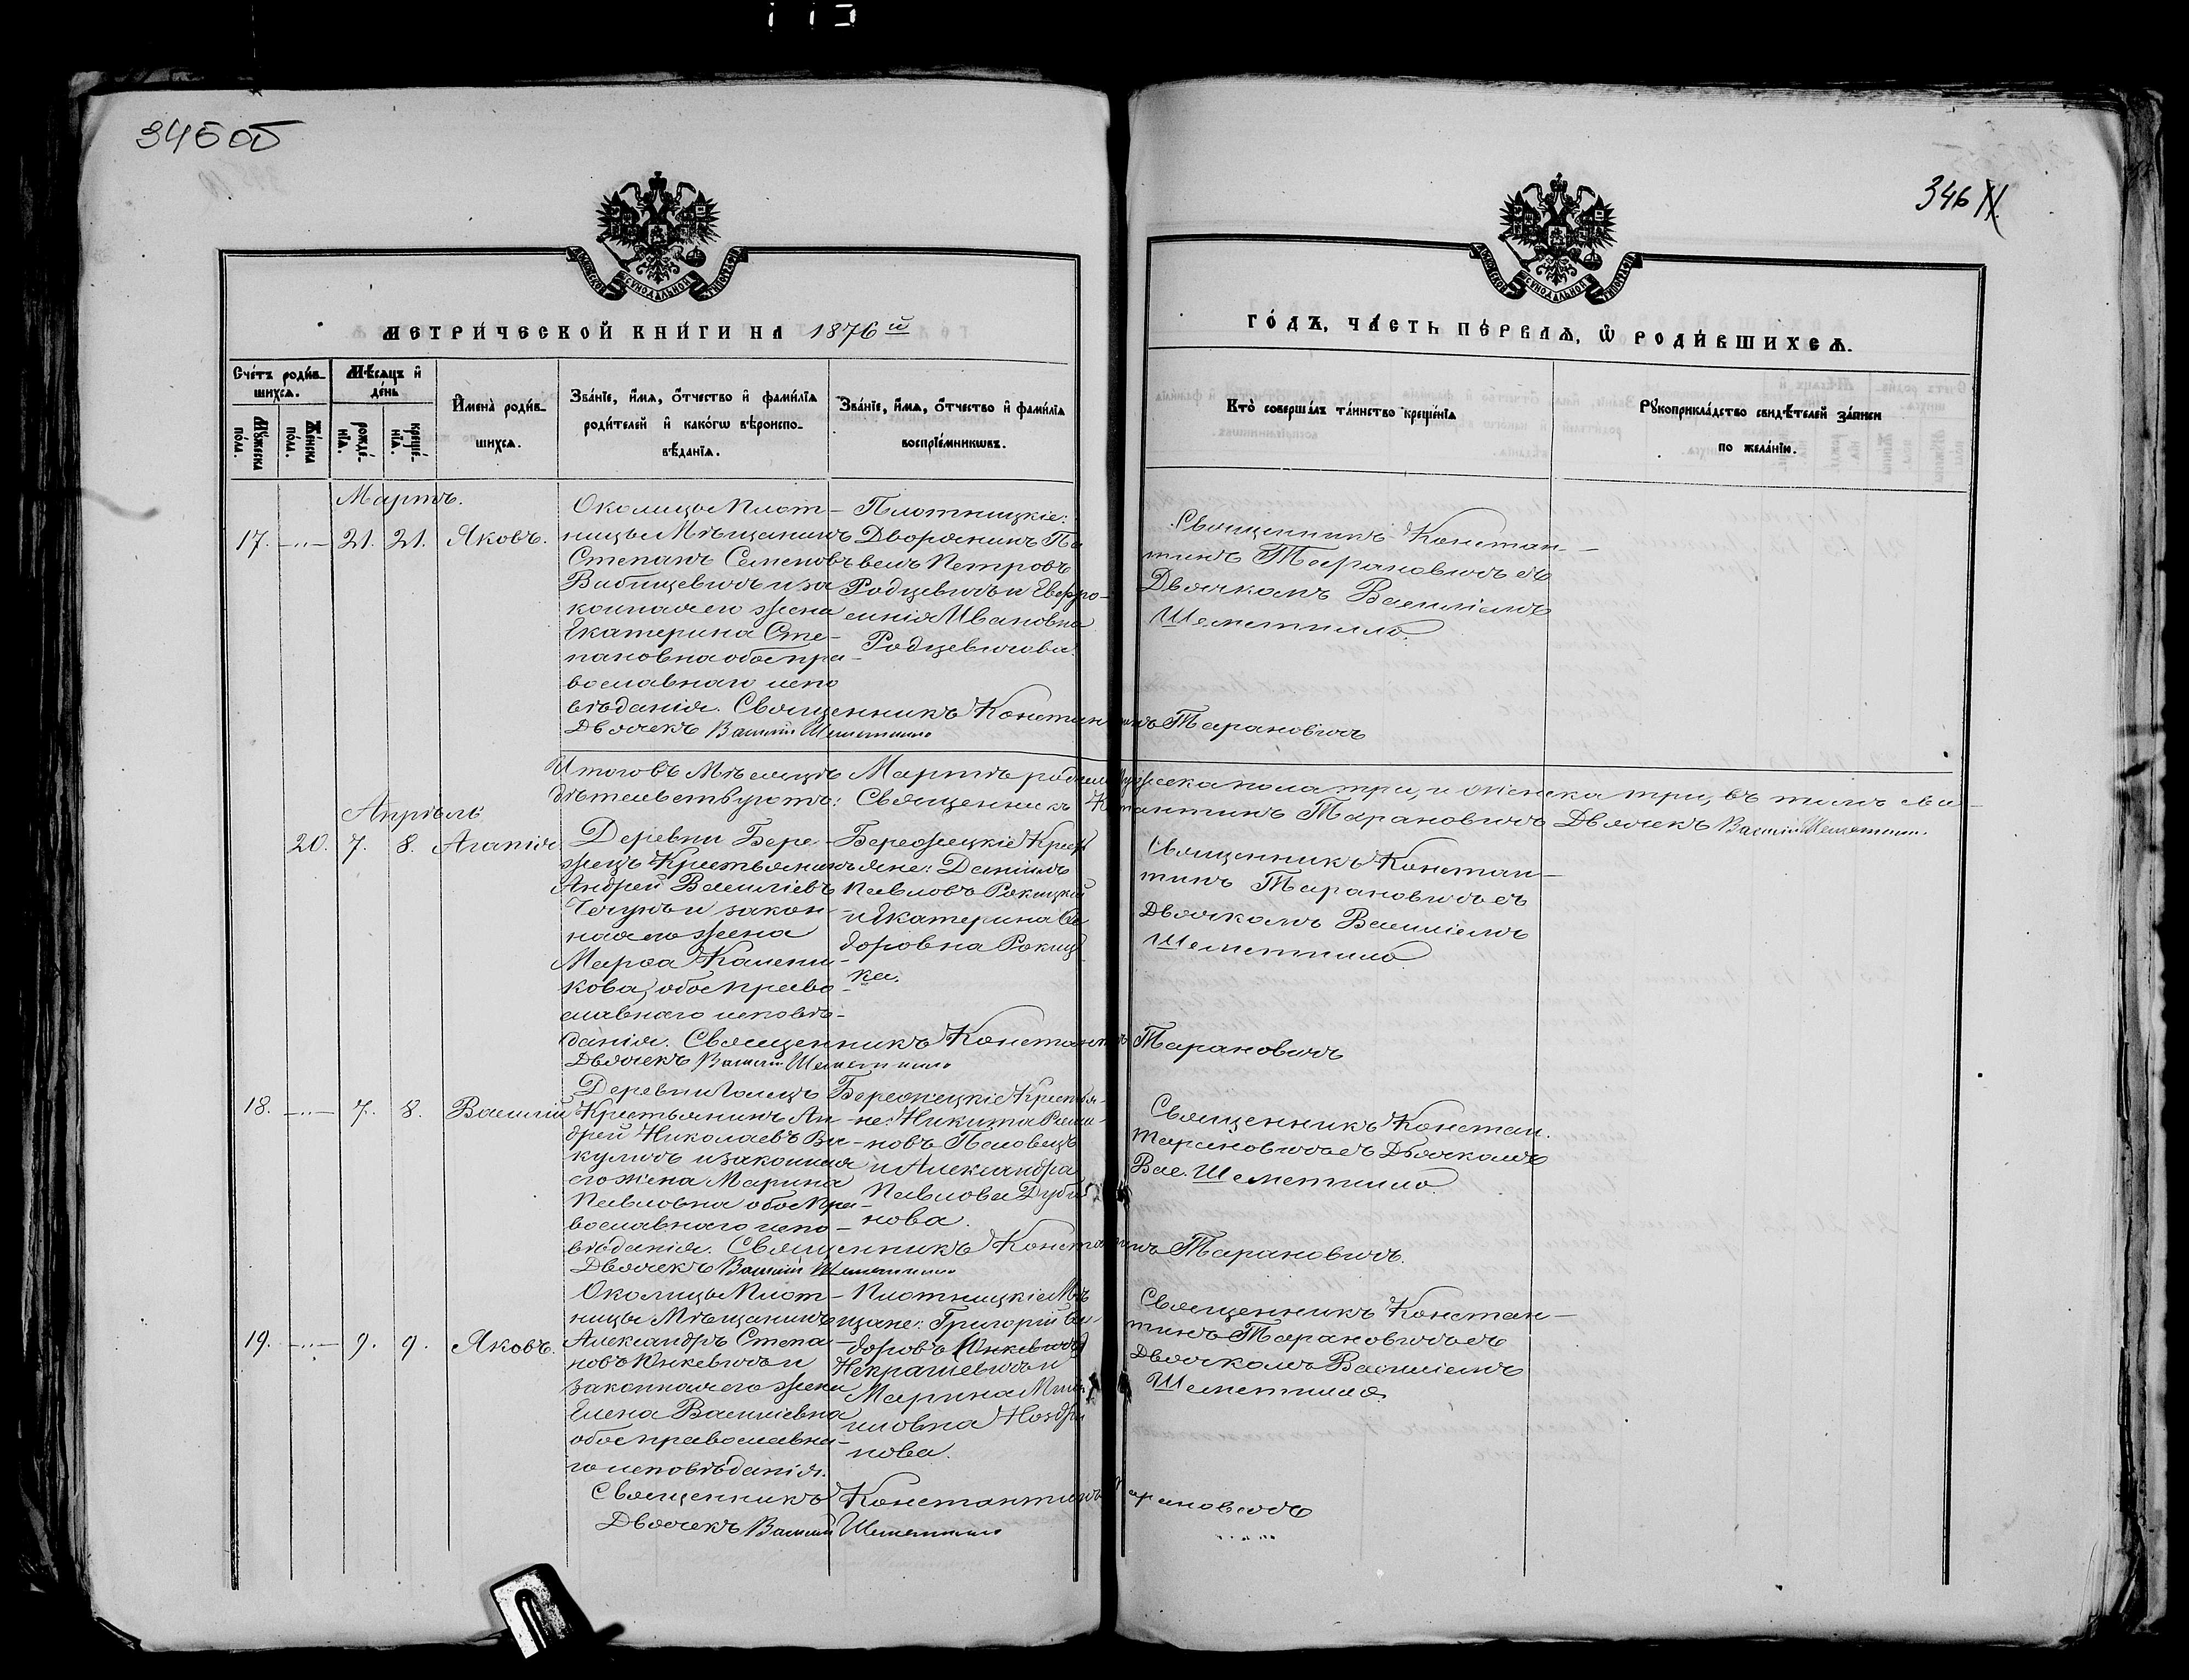 345 об
346
МЕТРИ́ЧЕСКОЙ КНИ́ГИ НА 1876 й
ГО́ДЪ, ЧА́СТЬ ПЕ́РВАѦ, Ѡ҆ РОДИ́ВШИХСѦ.
Сче́тъ роди́в-
шихсѧ.
Мꙋ́жеска по́ла.
Же́нска по́ла.
Мѣ́сѧцъ и҆
де́нь
рожде́-
нїѧ.
креще́-
нїѧ.
И҆мена̀ роди́в-
шихсѧ.
Зва́нїе, и҆́мѧ, ѻ҆́тчество и҆ фами́лїѧ
роди́телей и҆ како́гѡ вѣроиспо-
вѣ́данїѧ.
Зва́нїе, и҆́мѧ, ѻ҆́тчество и҆ фами́лїѧ
воспрїе́мникѡвъ.
Кто̀ соверша́лъ та́инство креще́нїѧ
Рꙋкоприкла́дство свидѣ́телей за́писи
по жела́нїю.
Мартъ.
17. 21. 21. Яковъ.
Околицы Плот-
ницы Мѣщанинъ
Степанъ Семеновъ
Вабищевичъ и за
конная его жена
Екатерина Сте-
пановна обое пра-
вославнаго испо
вѣданія. Священникъ Константинъ Тарановичъ
Дьячекъ Василій Шеметилло
Плотницкіе:
Дворянинъ Па
велъ Петровъ
Родцевичъ и Евфро-
синія Ивановна
Родцевичова.
Священникъ Констан-
тинъ Тарановичъ съ
Дьячкомъ Василіемъ
Шеметилло.
Итого въ Мѣсяцѣ Мартѣ родилось мужеска пола три, и женска три, въ чемъ сви-
дѣтельствуютъ: Священникъ Константинъ Тарановичъ Дьячекъ Василій Шеметилло.
Апрѣль
20. 7. 8. Агапія
Деревни Бере-
жецъ Крестьянинъ
Андрей Василіевъ
Чечунъ и закон-
ная его жена
Марѳа Калени-
кова, обое Право-
славнаго исповѣ-
данія. Священникъ Константинъ Тарановичъ
Дьячекъ Василій Шеметилло
Бережецкіе Крестья
не: Даніилъ
Павловъ Рокицкій
и Екатерина Си
доровна Рокиц-
ка.
Священникъ Констан-
тинъ Тарановичъ съ
Дьячкомъ Василіемъ
Шеметилло
18. 7. 8. Василій
Крестьянинъ Ан-
дрей Николаевъ Ви-
куличъ и законная
его жена Марина
Павловна обое Пра-
вославнаго испо-
вѣданія. Священникъ Константинъ Тарановичъ.
Дьячекъ Василій Шеметилло
Бережецкіе Крестья-
не: Никита
новъ Половецъ
и Александра
Павлова
нова.
Священникъ Констан.
Тарановичъ съ Дьячкомъ
Вас. Шеметилло.
19. 9. 9. Яковъ.
Околицы Плот-
ницы Мѣщанинъ
Александръ Степа-
новъ Юнкевичъ и
законная его жена
Елена Василіевна
обое православна-
го исповѣданія.
Плотницкіе Мѣ
щане: Григорій Си-
доровъ (Юнкевичъ)
Некрашевичъ и
Марина
иловна
нова.
Священникъ Констан-
тинъ Тарановичъ съ
Дьячкомъ Василіемъ
Шеметилло.
Священникъ Константинъ Тарановичъ
Дьячекъ Василій Шеметилло